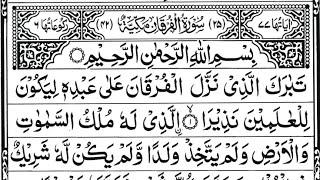 اٰیَاتُهَا ۷۷ (۲۵) سُوْرَةُ الْفُرْقَانِ مَكِّيَّةٌ (۴۲) رُكُوْعَاتُهَا ۶
بِسْمِ اللّٰهِ الرَّحْمٰنِ الرَّحِيْمِ
تَبٰرَكَ الَّذِيْ نَزَّلَ الْفُرْقَانَ عَلٰى عَبْدِهٖ لِيَكُوْنَ
لِلْعٰلَمِيْنَ نَذِيْرًا ۙ الَّذِيْ لَهٗ مُلْكُ السَّمٰوٰتِ
وَالْاَرْضِ وَلَمْ يَتَّخِذْ وَلَدًا وَّلَمْ يَكُنْ لَّهٗ شَرِيْكٌ